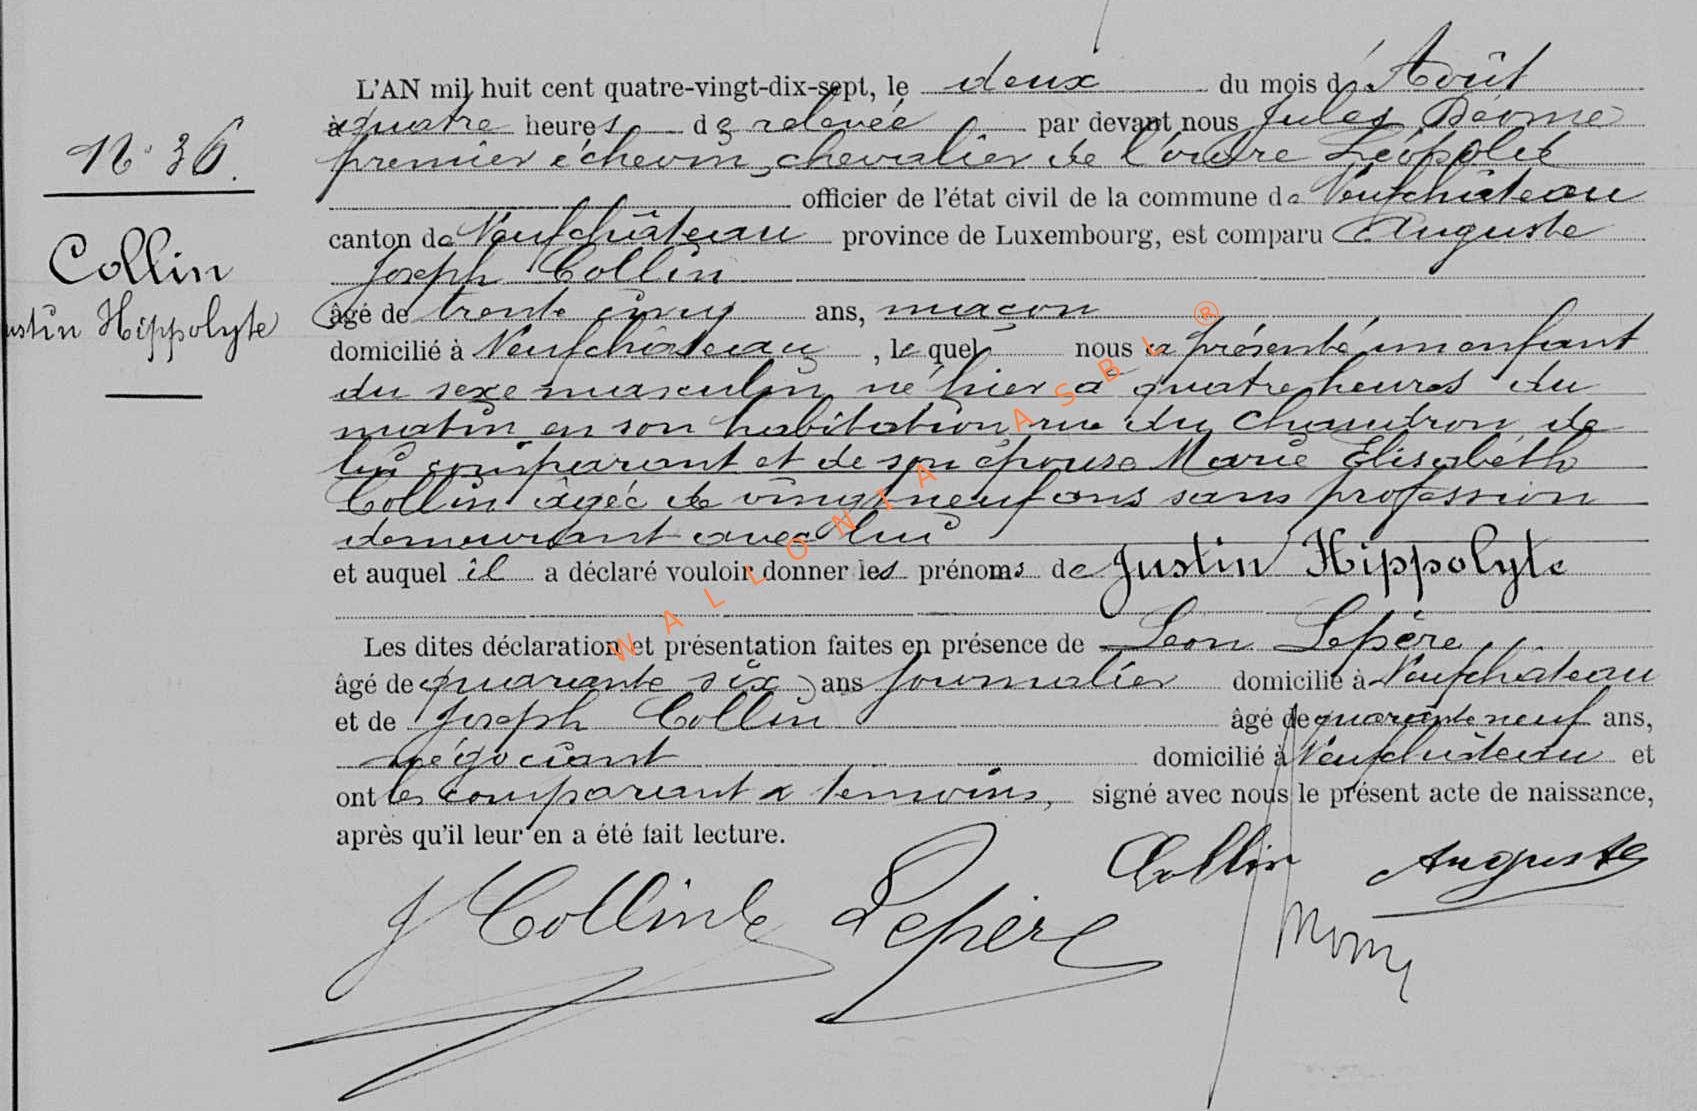 N° 36.
Collin
ustin Hippolyte
L'AN mil huit cent quatre-vingt-dix-sept, le deux du mois d'Août
à quatre heures de relevée par devant nous Jules
premier échevin, chevalier de l'ordre Léopold
officier de l'état civil de la commune de Neufchâteau
canton de Neufchâteau province de Luxembourg, est comparu Auguste
Joseph Collin
âgé de trente cinq ans, maçon
domicilié à Neufchâteau, lequel nous a présenté un enfant
du sexe masculin né hier à quatre heures du
matin en son habitation rue du Chaudron de
lui comparant et de son épouse Marie Elisabeth
Collin âgée de vingt neuf ans sans profession
demeurant avec lui
et auquel il a déclaré vouloir donner les prénoms de Justin Hippolyte
Les dites déclaration et présentation faites en présence de Leon Lepère
âgé de quarante six ans journalier domicilié à Neufchâteau
et de Joseph Collin âgé de quarante neuf ans,
négociant domicilié à Neufchâteau et
ont les comparant & temoins, signé avec nous le présent acte de naissance,
après qu'il leur en a été fait lecture.
Collin Auguste
J Collin Lepère
WALLONIA ASBL ®